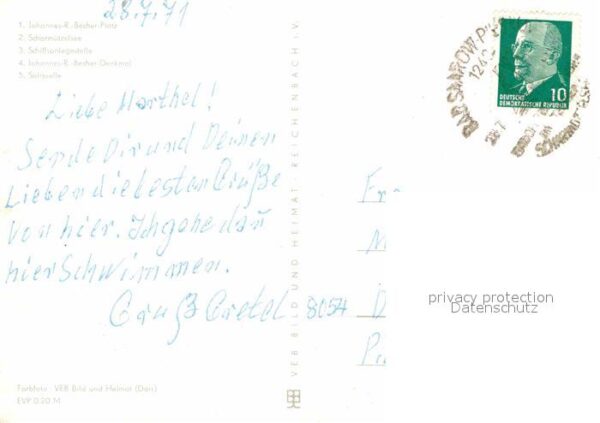 28.7.71
1. Johannes-R.-Becher-Platz
2. Scharmützelsee
3. Schiffsanlegestelle
4. Johannes-R.-Becher-Denkmal
5. Seterrasse
Liebe Marthel!
Sende Dir und Deinen
Lieben die besten Grüße
von hier. Ich gehe dan
hier Schwimmen.
Gruß Gretel
Farbfoto: VEB Bild und Heimat (Darr)
EVP 0.20 M
VEB BILD UND HEIMAT REICHENBACH i. V.
BAD SAAROW-P
1242
28.7
SCHARMÜTZELSEE
DEUTSCHE
DEMOKRATISCHE REPUBLIK
10
Fr
M
8054 D
P
privacy protection
Datenschutz